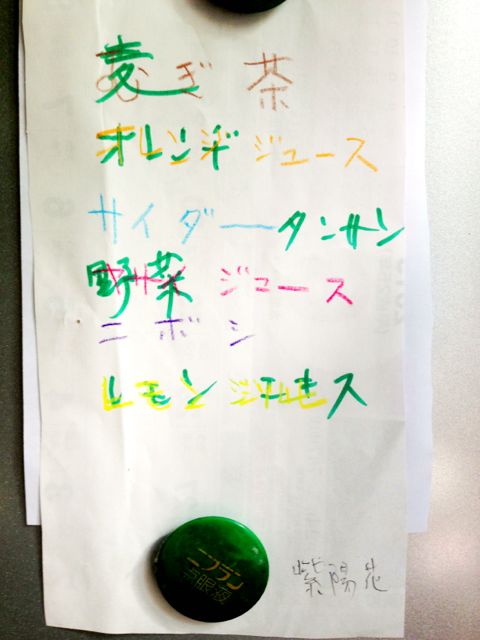 麦ぎ茶
オレンヂジュース
サイダータンサン
野菜ジュース
ニボシ
レモン
ニフラン
点眼液
紫陽花